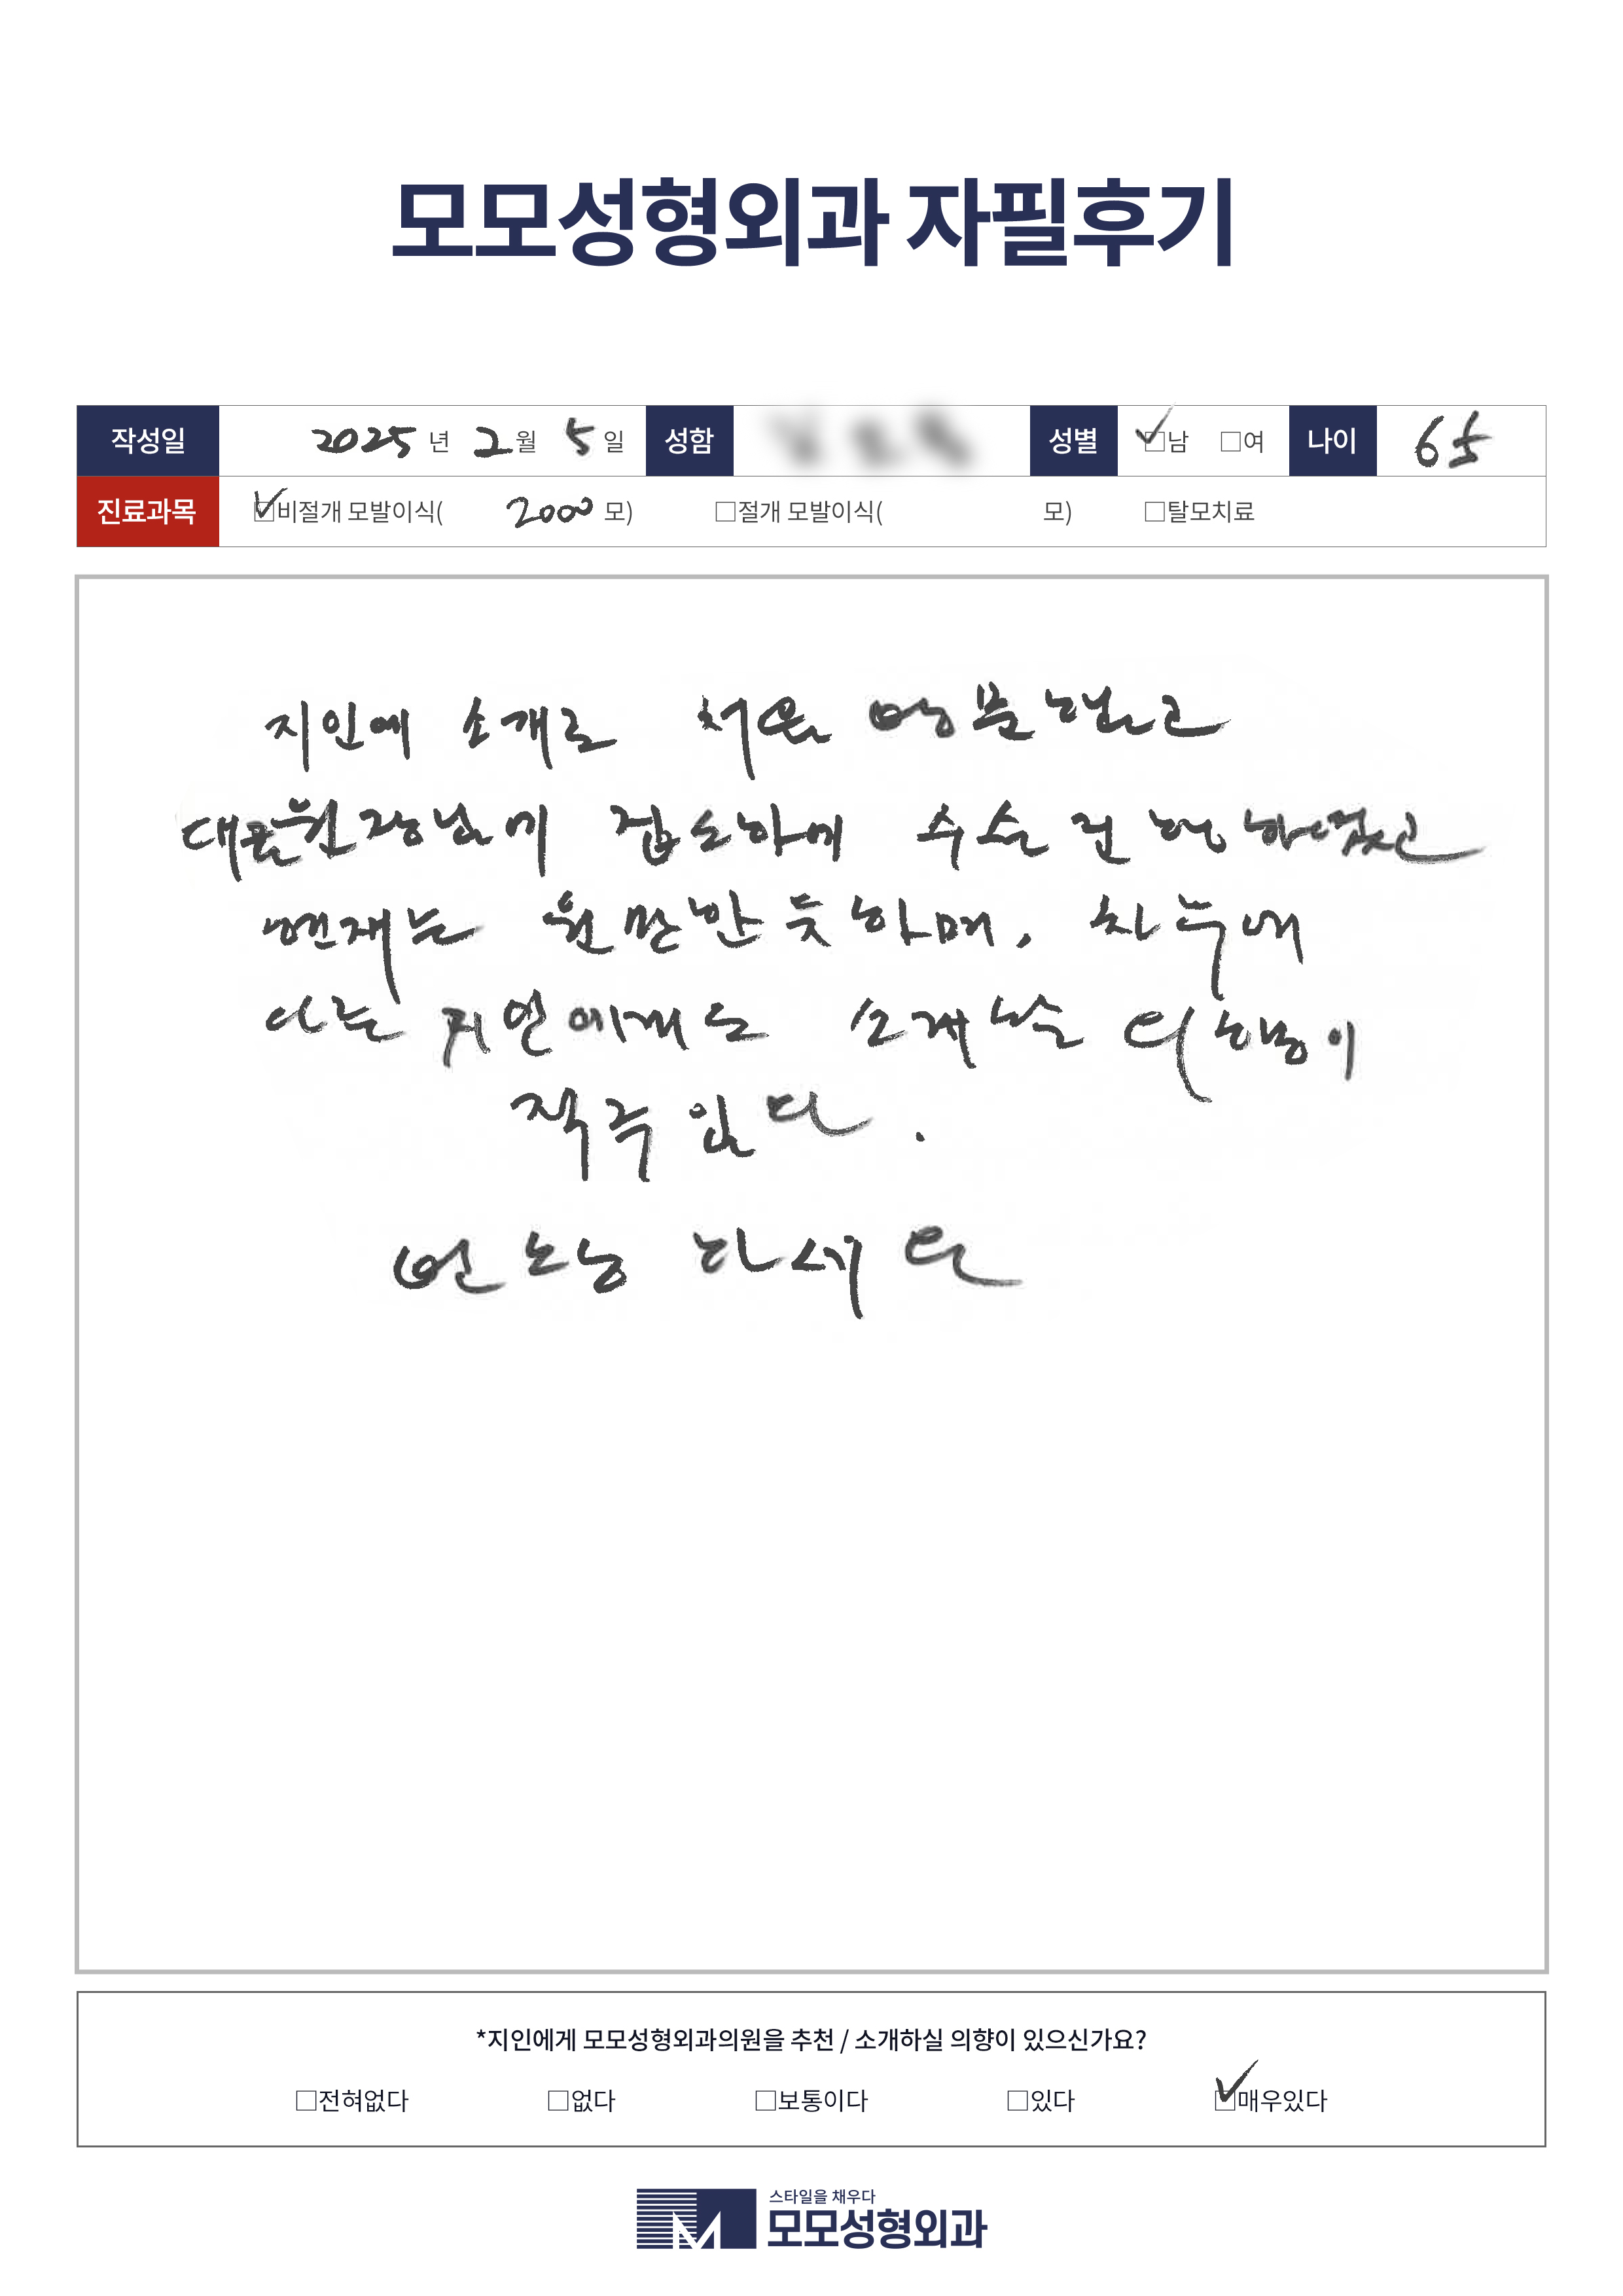 모모성형외과 자필후기
작성일 2025 년 2 월 5 일 성함 성별 ☑남 □여 나이 65
진료과목 ☑비절개 모발이식( 2000 모) □절개 모발이식( 모) □탈모치료
지인에 소개로 처음 방문했고
대표원장님께 집도하에 수술 진행 하였고
현재는 원만한 듯하며, 차후에
다른 지인에게도 소개할 의향이
적극 있다.
번창 하세요
*지인에게 모모성형외과의원을 추천 / 소개하실 의향이 있으신가요?
□전혀없다 □없다 □보통이다 □있다 ☑매우있다
스타일을 채우다
모모성형외과